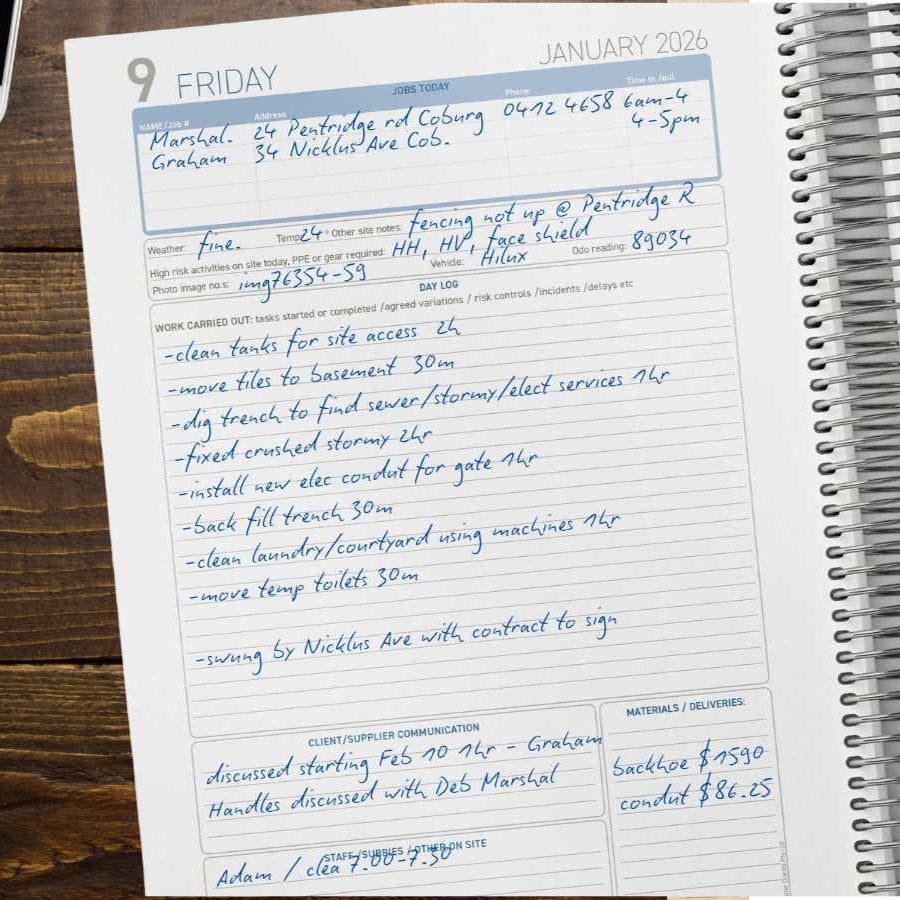 9 FRIDAY JANUARY 2026
JOBS TODAY
NAME/Job # Address Phone Time in /out
Marshal. 24 Pentridge rd Coburg 0412 4658 6am-4
Graham 34 Nicklus Ave Cob. 4-5pm
Weather: fine. Temp 24° Other site notes: fencing not up @ Pentridge R
High risk activities on site today, PPE or gear required: HH, HV, face shield
Photo image no.s: img76354-59 Vehicle: Hilux Odo reading: 89034
DAY LOG
WORK CARRIED OUT: tasks started or completed /agreed variations / risk controls /incidents /delays etc
-clean tanks for site access 2h
-move tiles to basement 30m
-dig trench to find sewer/stormy/elect services 1hr
-fixed crushed stormy 2hr
-install new elec condut for gate 1hr
-back fill trench 30m
-clean laundry/courtyard using machines 1hr
-move temp toilets 30m
-swung by Nicklus Ave with contract to sign
CLIENT/SUPPLIER COMMUNICATION
discussed starting Feb 10 1hr - Graham
Handles discussed with Deb Marshal
MATERIALS / DELIVERIES:
backhoe $1590
condut $86.25
STAFF /SUBBIES / OTHER ON SITE
Adam / clea 7.00-7.30